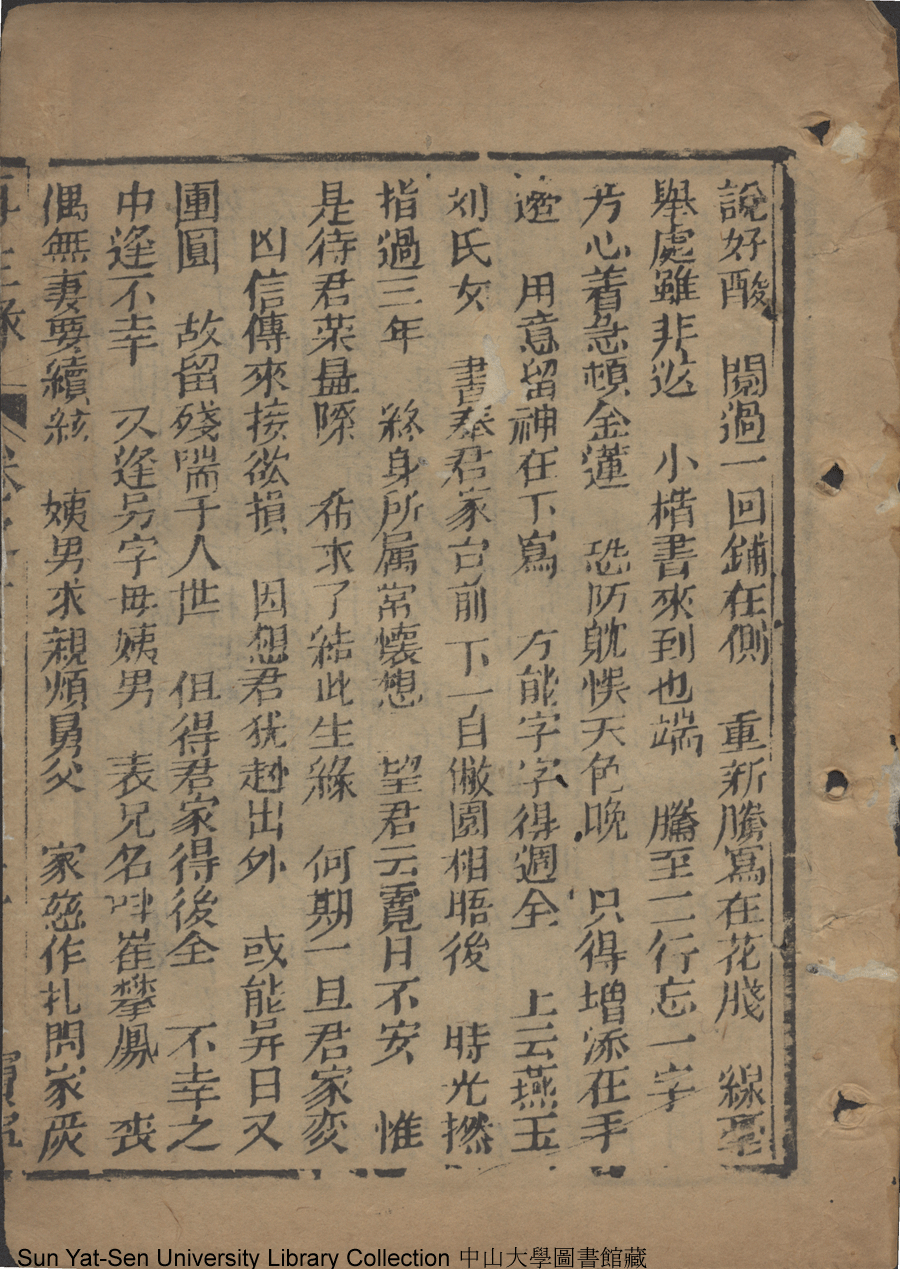 說好酸　閱過一回鋪在側　重新騰寫在花牋　線毫
舉處雖非迯　小楷書來到也端　騰至二行忘一字
芳心着急頓金蓮　恐防躭悞天色晚　只得增添在手
邊　用意留神在下寫　方能字字得週全　上云燕玉
刘氏女　書奉君家台前下　一自俶園相晤後　時光撚
指過三年　終身所属常懷想　望君云霓日不安　惟
是待君菜　際　希求了結此生緣　何期一旦君家变
凶信傳來接欲損　因想君犹趂出外　或能异日又
團圓　故留殘喘于人世　但得君家得後全　不幸之
中逢不幸　又逢另字毋姨男　表兄名呌崔攀鳳　丧
偶無妻要續絃　姨男求親煩舅父　家慈作扎問家严
Sun Yat-Sen University Library Collection 中山大學圖書館藏